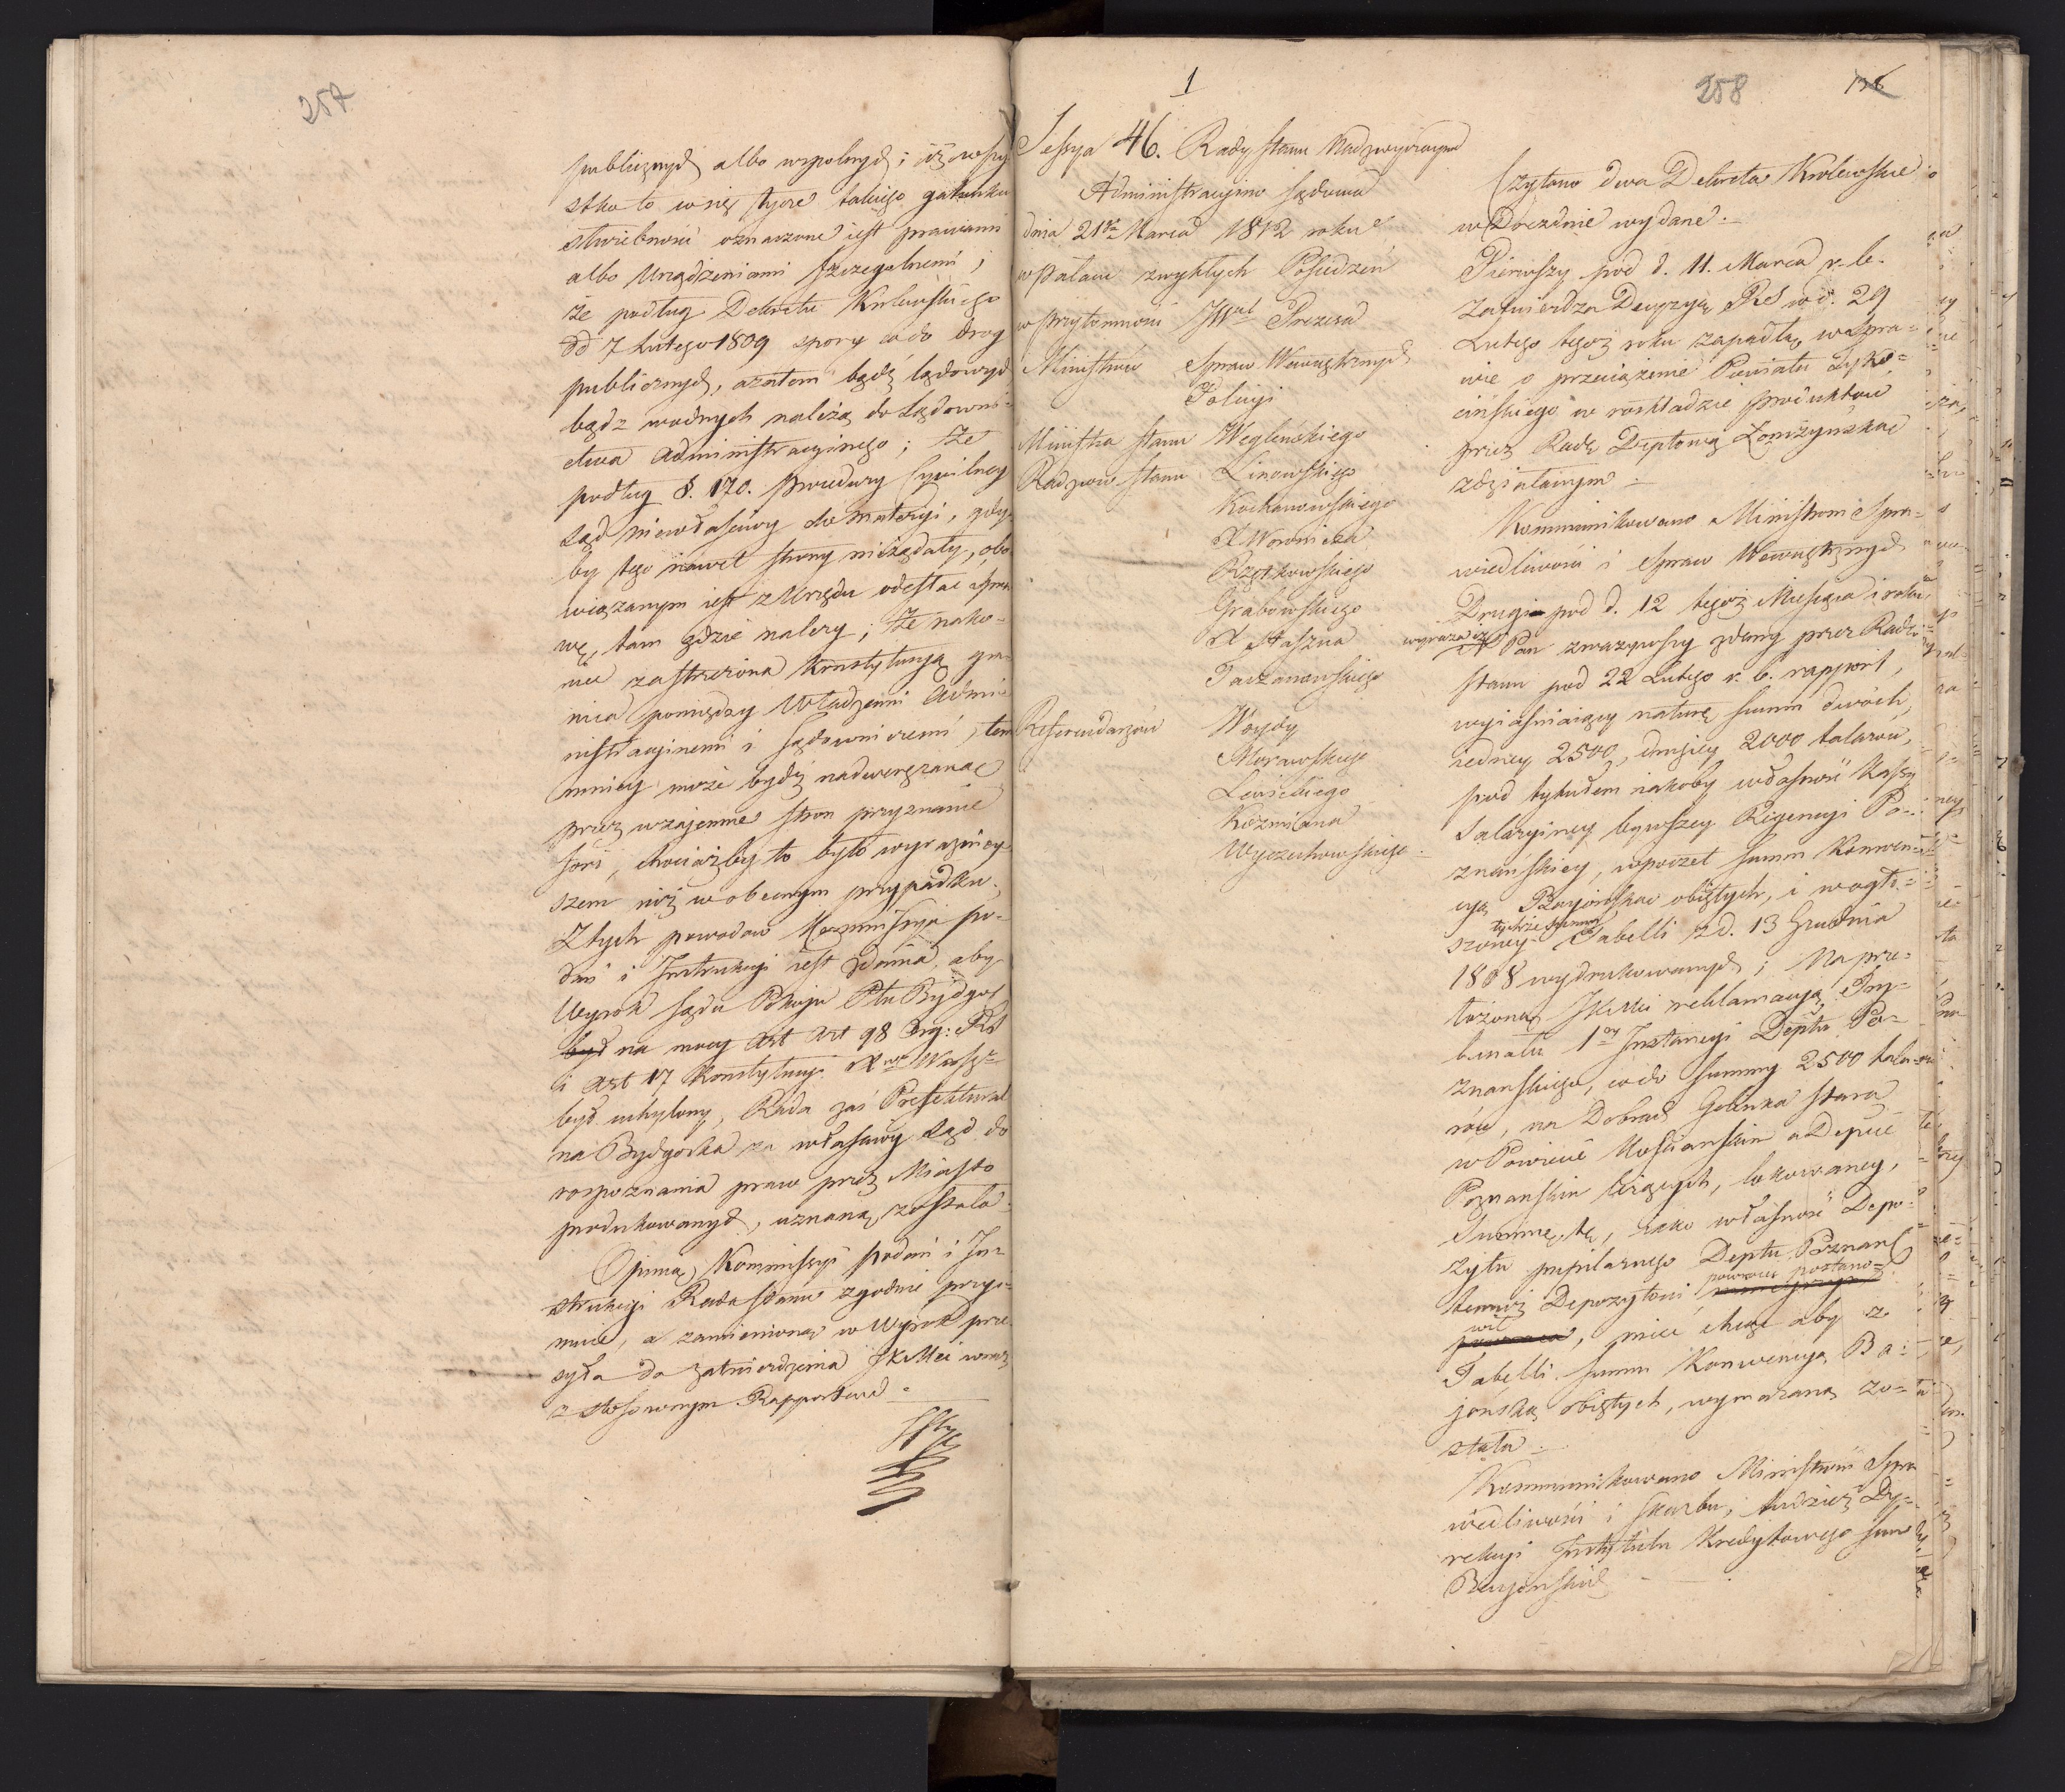 257
publicznych albo wspolnych; iż wszy-
stko to co się tycze takiego gatunku
słuzebnosci oznaczone iest prawami
albo Urządzeniami szczegolnemi;
że podług Dekretu Krolewskiego
dd 7 Lutego 1809 spory co do drog
publicznych, a zatem bądź lądowych
bądz wodnych należą do Sądowni-
ctwa Administracyinego; że
podług §. 170. Procedury Cywilney
Sąd niewłaściwy do materyi, gdy-
by tego nawet strony nieżądały, obo-
wiązanym iest z Urzędu odesłac spra-
wę, tam gdzie nalezy; że nako-
niec zastrzeżona Konstytucyą gra-
nica pomiędzy Władzami Admi-
nistracyinemi i sądowniczemi, tem
mniey może bydź nadwerężana
przez wzajemne stron przyznanie
fori, chociażby to było wyraźniey-
szem niż w obecnym przypadku.
Z tych powodow Kommissyja po-
dań i Instrukcyi iest zdania, aby
Wyrok Sądu Pokoju Ptu Bydgos
był na mocy Art 98 Org: RS
i Art 17 Konstytucyi Xwa Warszgo
był uchylony, Rada zas Prefektural-
na Bydgoska za właściwy Sąd do
rozpoznania praw przez Miasto
produkowanych, uznaną została.
Opinią Kommissyi podań i In-
strukcyi Rada Stanu zgodnie przyi-
muie, a zamienioną w Wyrok prze-
syła do zatwierdzenia JKMci wraz
z stosownym Rapportem.
1
258
138
Sessya 46. Rady Stanu Nadzwyczayna
Administracyino Sądowa
dnia 21go Marca 1812 roku
w Pałacu zwykłych Posiedzeń
w przytomności JWgo Prezesa
Ministrów Spraw Wewnętrznych
Policyi
Ministra Stanu Węgleńskiego
Radzcow Stanu Linowskiego
Kochanowskiego
X Woronicza
Rzętkowskiego
Grabowskiego
X Staszica
Taczanowskiego
Referendarzów Woydy
Morawskiego
Lewickiego
Kozmiana
Wyczechowskiego
Czytano dwa Dekreta Krolewskie
w Dreznie wydane:
Pierwszy pod d. 11. Marca r. b.
zatwierdza Decyzyą RS w d. 29
Lutego tegoż roku zapadłą, w spra-
wie o przeciążenie Powiatu Tyko-
cińskiego w rozkładzie produktow
przez Radę Deptową Łomżyńską
zdziałanym.
Kommunikowano Ministrom Spra-
wiedliwości i Spraw Wewnętrznych
Drugi pod d. 12 tegoż Miesiąca i roku,
wyraża iż N Pan zważywszy zdany przez Radę
Stanu pod 22 Lutego r. b. rapport,
wyiaśniaiący naturę summ dwóch,
iedney 2500, drugiey 2000 talarów,
pod tytułem iakoby własność Kassy
Salaryiney bywszey Regencyi Po-
znańskiey, w poczet summ Konwen-
cyą Bayońską obiętych, i w ogło-
szoney tychże summ Tabelli z d. 13 Grudnia
1808 wydrukowanych; Na prze-
łożoną JKMci reklamacyą Try-
bunału 1ey Instancyi Deptu Po-
znanskiego, co do summy 2500 tala-
rów, na Dobrach Golinka stara
w Powiecie Kościanskim a Depcie
Poznanskim leżących, lokowaney,
Summę tę, iako własność Depo-
zytu pupilarnego Deptu Poznans
temuż Depozytowi powrócic postano-
wił, miec chcąc aby z
Tabelli summ Konwencyą Ba-
jońską obiętych, wymazaną zo-
stała.
Kommunikowano Ministrowi Spra-
wiedliwości i Skarbu, tudzież Dy-
rekcyi Instytutu Kredytowego summ
Bayonskich